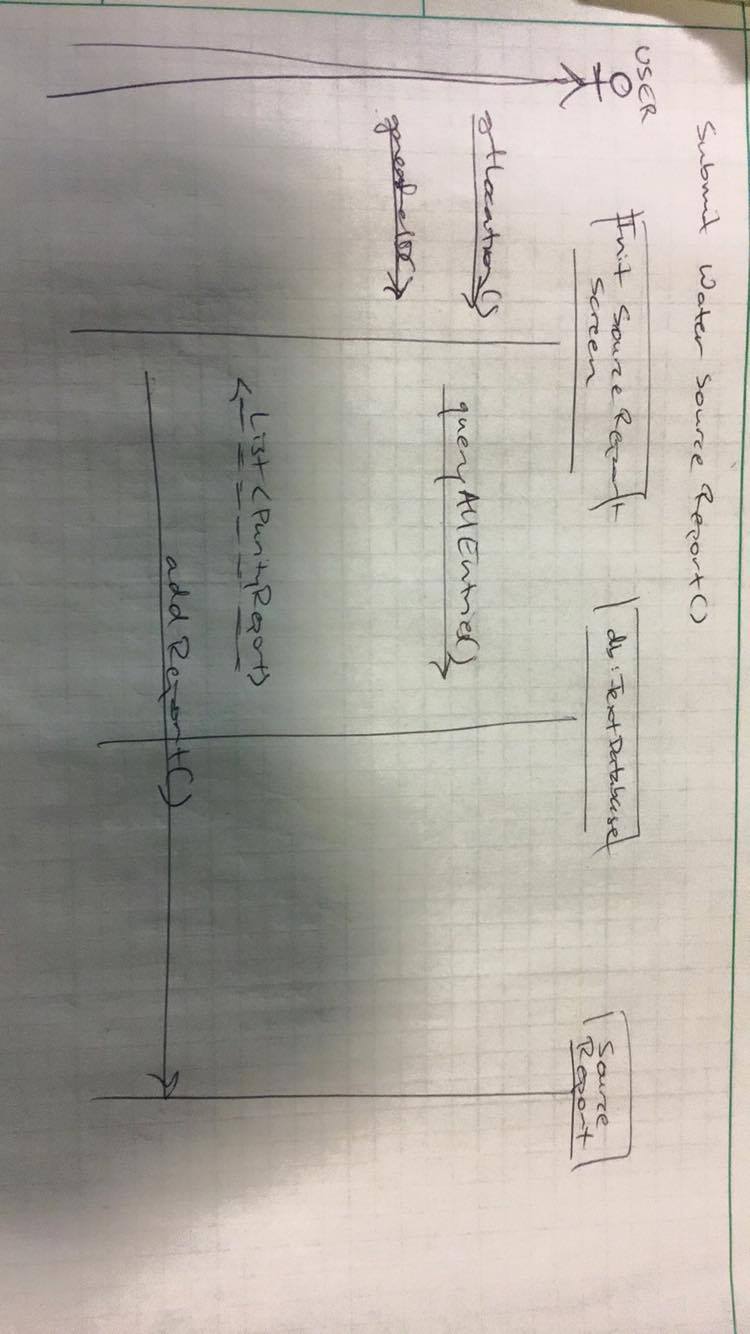 Submit Water Source Report()
USER
Init Source Report
Screen
db: TextDatabase
Source
Report
queryAllEntries()
List<PurityReport>
addReport()